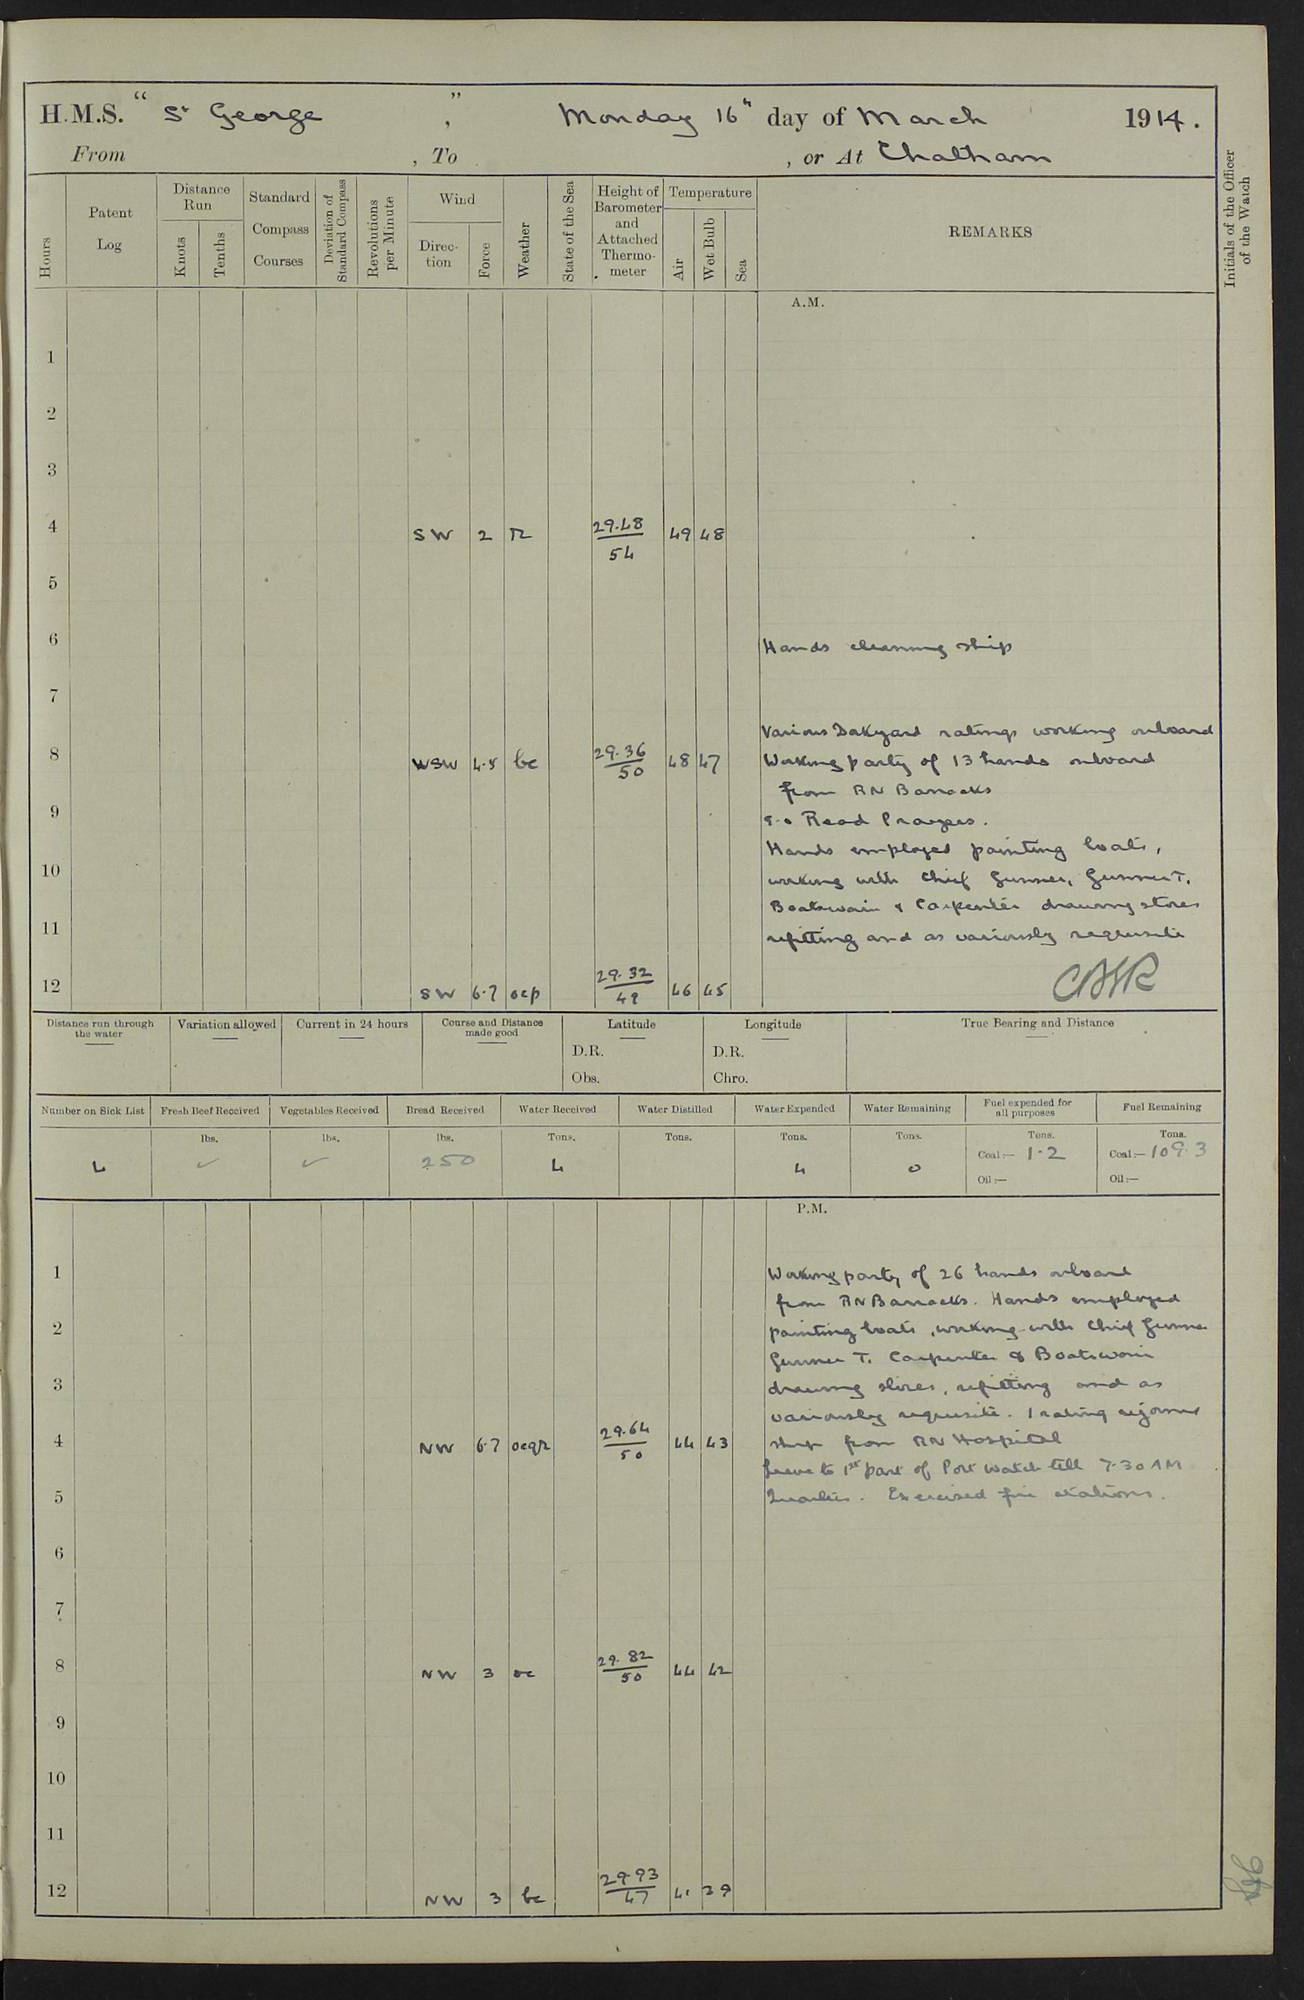 H.M.S. “ St George ”, Monday 16th day of March 1914.
From , To , or At Chatham
Hours
Patent Log
Distance Run
Knots
Tenths
Standard Compass Courses
Deviation of Standard Compass
Revolutions per Minute
Wind
Direction
Force
Weather
State of the Sea
Height of Barometer and Attached Thermometer
Temperature
Air
Wet Bulb
Sea
REMARKS
Initials of the Officer of the Watch
A.M.
1
2
3
4 SW 2 r 29.48 / 54 49 48
5
6 Hands cleaning ship
7
Various Dakyard ratings working onboard
8 WSW 4.5 bc 29.36 / 50 48 47 Working party of 13 hands onboard
from RN Barracks
9 9.0 Read Prayers.
Hands employed painting boats,
10 working with Chief Gunner, Gunner T.
Boatswain & Carpenter drawing stores
11 refitting and as variously requisite
12 SW 6.7 ocp 29.32 / 49 46 45
Distance run through the water
Variation allowed
Current in 24 hours
Course and Distance made good
Latitude
D.R.
Obs.
Longitude
D.R.
Chro.
True Bearing and Distance
Number on Sick List
Fresh Beef Received
Vegetables Received
Bread Received
Water Received
Water Distilled
Water Expended
Water Remaining
Fuel expended for all purposes
Fuel Remaining
lbs. lbs. lbs. Tons. Tons. Tons. Tons. Tons. Tons.
4 ✓ ✓ 250 4 4 0 Coal:— 1.2 Coal:— 109.3
Oil:— Oil:—
P.M.
1 Working party of 26 hands onboard
from RN Barracks. Hands employed
2 painting boats, working with Chief Gunner
Gunner T. Carpenter & Boatswain
3 drawing stores, refitting and as
variously requisite. 1 rating rejoined
4 NW 6.7 ocqr 29.64 / 50 44 43 ship from RN Hospital
Leave to 1st part of Port watch till 7.30 AM
5 Quarters. Exercised fire stations.
6
7
8 NW 3 oc 29.82 / 50 44 42
9
10
11
12 NW 3 bc 29.93 / 47 41 39